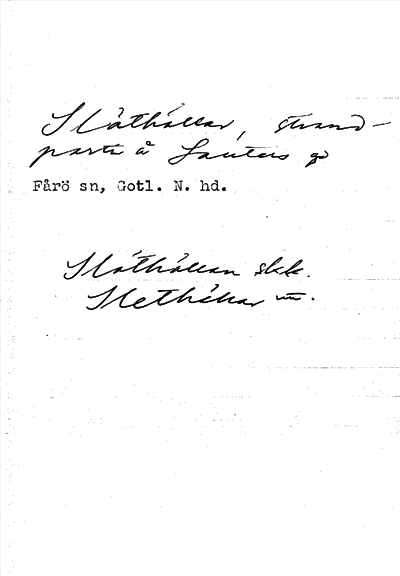 Slåthällar, strand-
parti å Lauters gd
Fårö sn, Gotl. N. hd.
Slåthällan skk.
Slethällar m.